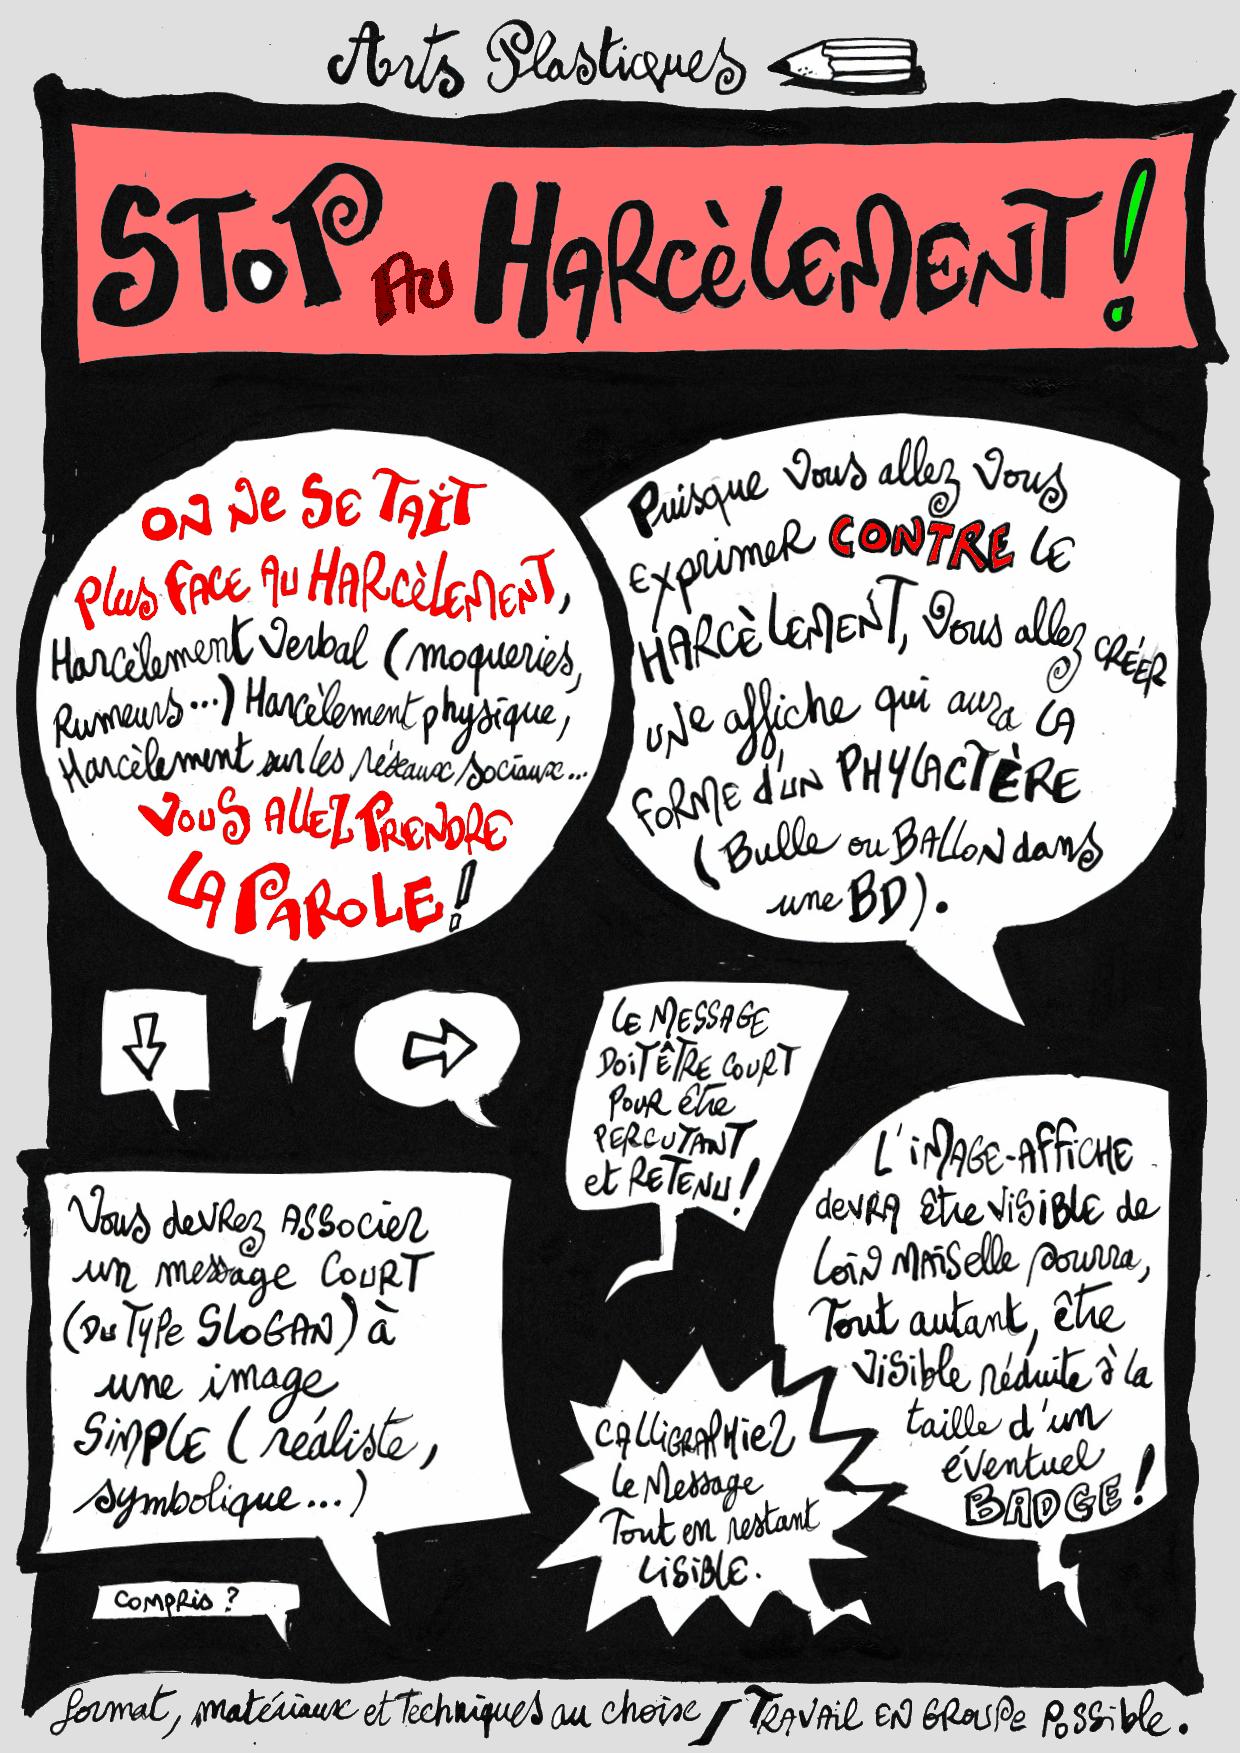 Arts Plastiques
STOP AU HARCèLEMENT!
ON NE SE TAIT
Plus FACE AU HARCèLEMENT,
Harcèlement Verbal (moqueries,
Rumeurs...) Harcèlement physique,
Harcèlement sur les réseaux sociaux...
VOUS ALLEZ PRENDRE
LA PAROLE!
Puisque Vous allez Vous
exprimer CONTRE LE
HARCÈLEMENT, Vous allez CRÉER
UNe affiche qui aura LA
FORME d'UN PHYLACTÈRE
(Bulle ou BALLON dans
une BD).
Le MESSAGE
DOIT ÊTRE COURT
POUR être
PERCUTANT
et RETENU!
L'iMAGE-AFFiCHE
deVRA être ViSiBLE de
Loin MAiS elle pourra,
Tout autant, être
ViSible réduite à la
taille d'un
éventuel
BADGE!
Vous deVRez ASSocier
un message COURT
(Du Type SLOGAN) à
une image
SiMPLE (réaliste,
symbolique...)
CALLiGRAPHiez
le Message
Tout en restant
LiSiBLE.
COMPRis ?
format, matériaux et Techniques au choix / TRAVAil EN GROUPe PoSSible.